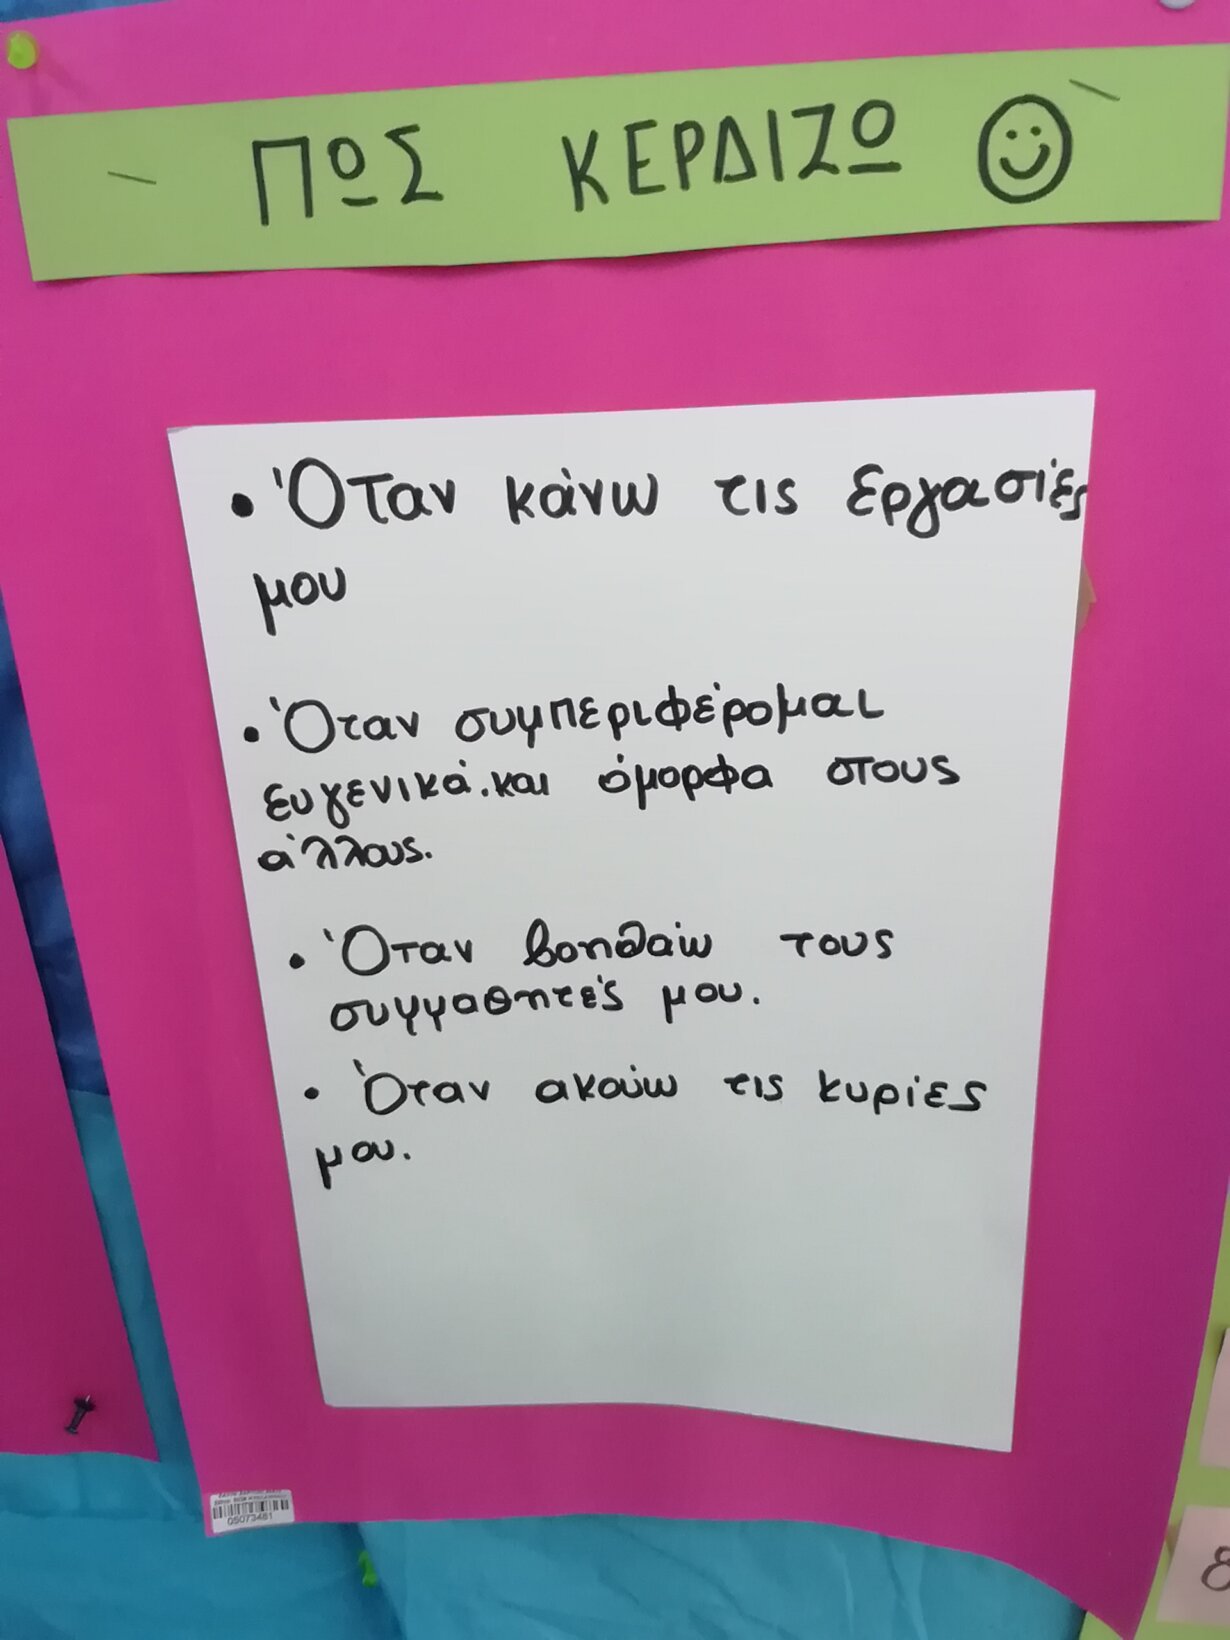 ΠΩΣ ΚΕΡΔΙΖΩ
• Όταν κάνω τις εργασίες
μου
• Όταν συμπεριφέρομαι
ευγενικά.και όμορφα στους
άλλους.
• Όταν βοηθαώ τους
συμμαθητές μου.
• Όταν ακούω τις κυρίες
μου.
05073481
8